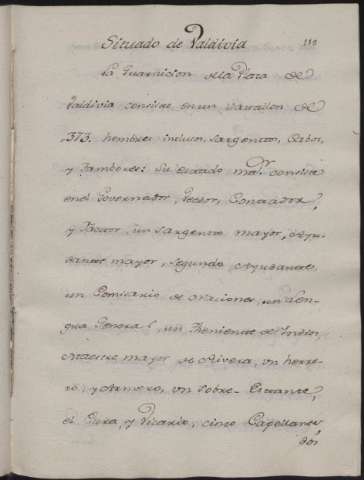 Situado de Valdivia
La Guarnicion de la Plaza de
Valdivia consiste en un Batallon de
373. hombres inclusos Sargentos, Cabos,
y Tambores: Su Estado maor. consiste
en el Governador, Veedor, Contador,
y Factor, un Sargento mayor, Ayu-
dante mayor, Segundo Ayudante,
un Comisario de Naciones, un Len-
gua General, un Theniente de Indios,
Maestre mayor de Rivera, un herre-
ro, y Armero, un Sobre-Estante,
el Cura, y Vicario, cinco Capellanes,
dos